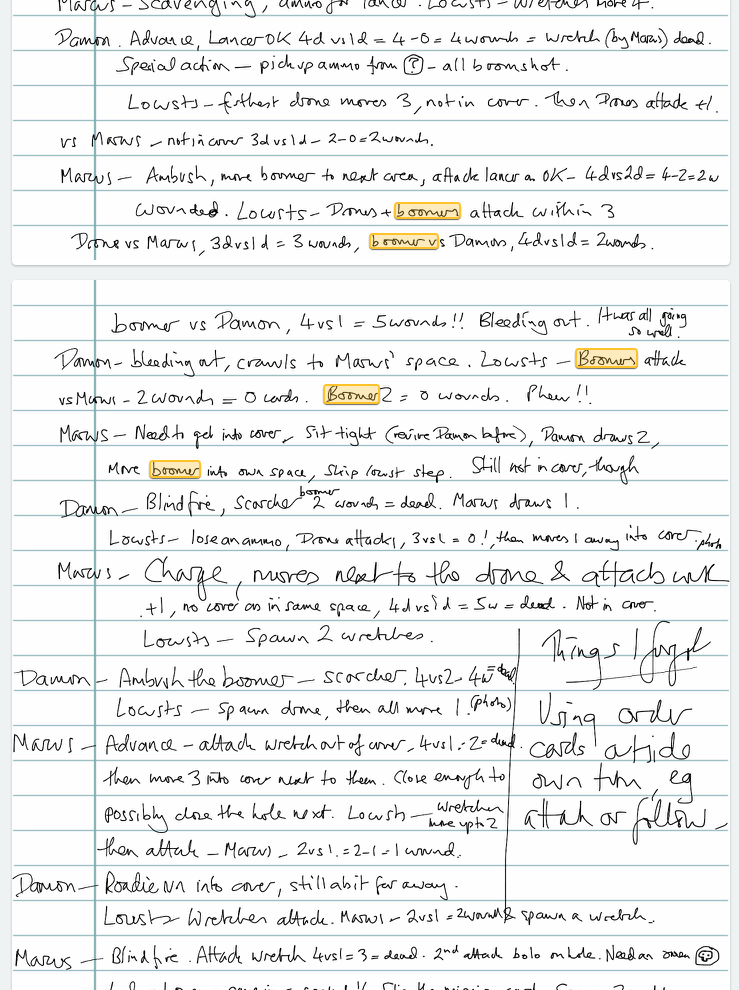 Marcus – Scavenging, ammo for lancer. Locusts – Wretches move 4.
Damon. Advance, Lancer OK 4d vs 1d = 4-0 = 4 wounds = wretch (by Marcus) dead.
Special action – pick up ammo from ? – all boomshot.
Locusts – furthest drone moves 3, not in cover. Then Drones attack +1.
vs Marcus – not in cover 3d vs 1d – 2-0 = 2 wounds.
Marcus – Ambush, move boomer to next area, attack lancer on OK – 4d vs 2d = 4-2 = 2w
wounded. Locusts – Drones + boomers attack within 3
Drone vs Marcus, 3d vs 1d = 3 wounds, boomer vs Damon, 4d vs 1d = 2 wounds.
boomer vs Damon, 4 vs 1 = 5 wounds!! Bleeding out. It was all going so well.
Damon – bleeding out, crawls to Marcus' space. Locusts – Boomers attack
vs Marcus – 2 wounds = 0 cards. Boomer 2 = 0 wounds. Phew!!
Marcus – Need to get into cover, Sit tight (revive Damon before), Damon draws 2,
Move boomer into own space, Skip locust step. Still not in cover, though
Damon – Blindfire, Scorcher boomer 2 wounds = dead. Marcus draws 1.
Locusts – lose an ammo, Drone attacks, 3 vs 1 = 0!, then moves 1 away into cover. photo
Marcus – Charge, moves next to the drone & attacks with
+1, no cover as in same space, 4d vs 1d = 5w = dead. Not in cover.
Locusts – Spawn 2 wretches.
Damon – Ambush the boomer – scorcher. 4 vs 2 – 4w = dead
Locusts – spawn drone, then all move 1. (photo)
Marcus – Advance – attack wretch out of cover, 4 vs 1 = 2 = dead.
then move 3 into cover next to them. Close enough to
possibly close the hole next. Locusts – wretches move up to 2
then attack – Marcus – 2 vs 1 = 2-1 = 1 wound.
Damon – Roadie run into cover, still a bit far away.
Locusts Wretches attack. Marcus – 2 vs 1 = 2 wounds & spawn a wretch.
Marcus – Blindfire. Attack wretch 4 vs 1 = 3 = dead. 2nd attack bolo on hole. Need an omen
Things I forgot
Using order
cards outside
own turn, eg
attack or follow